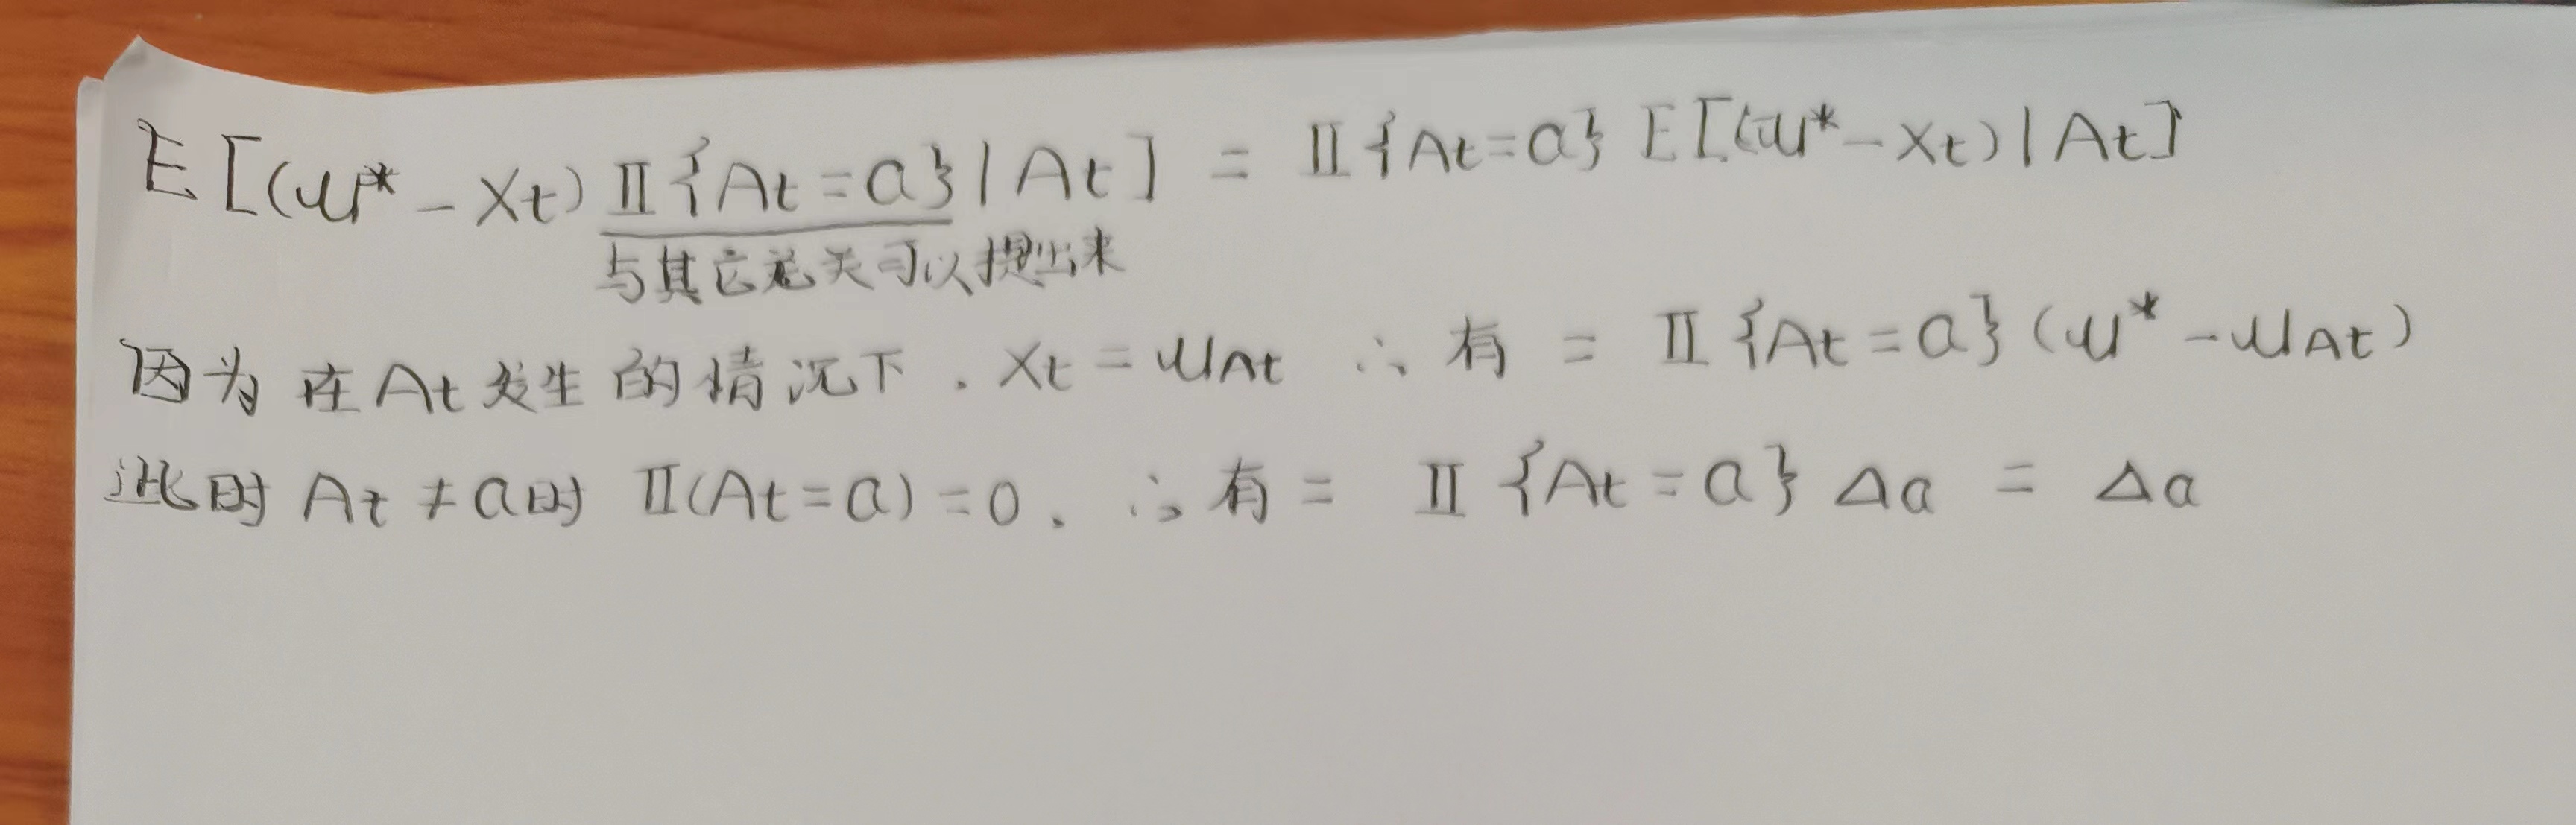 E[(μ* - Xt) 𝕀{At=a}|At] = 𝕀{At=a} E[(μ* - Xt)|At]
与其它无关可以提出来
因为在At发生的情况下. Xt = μAt ∴有 = 𝕀{At=a}(μ* - μAt)
此时 At ≠ a时 𝕀(At=a)=0. ∴有 = 𝕀{At=a}Δa = Δa